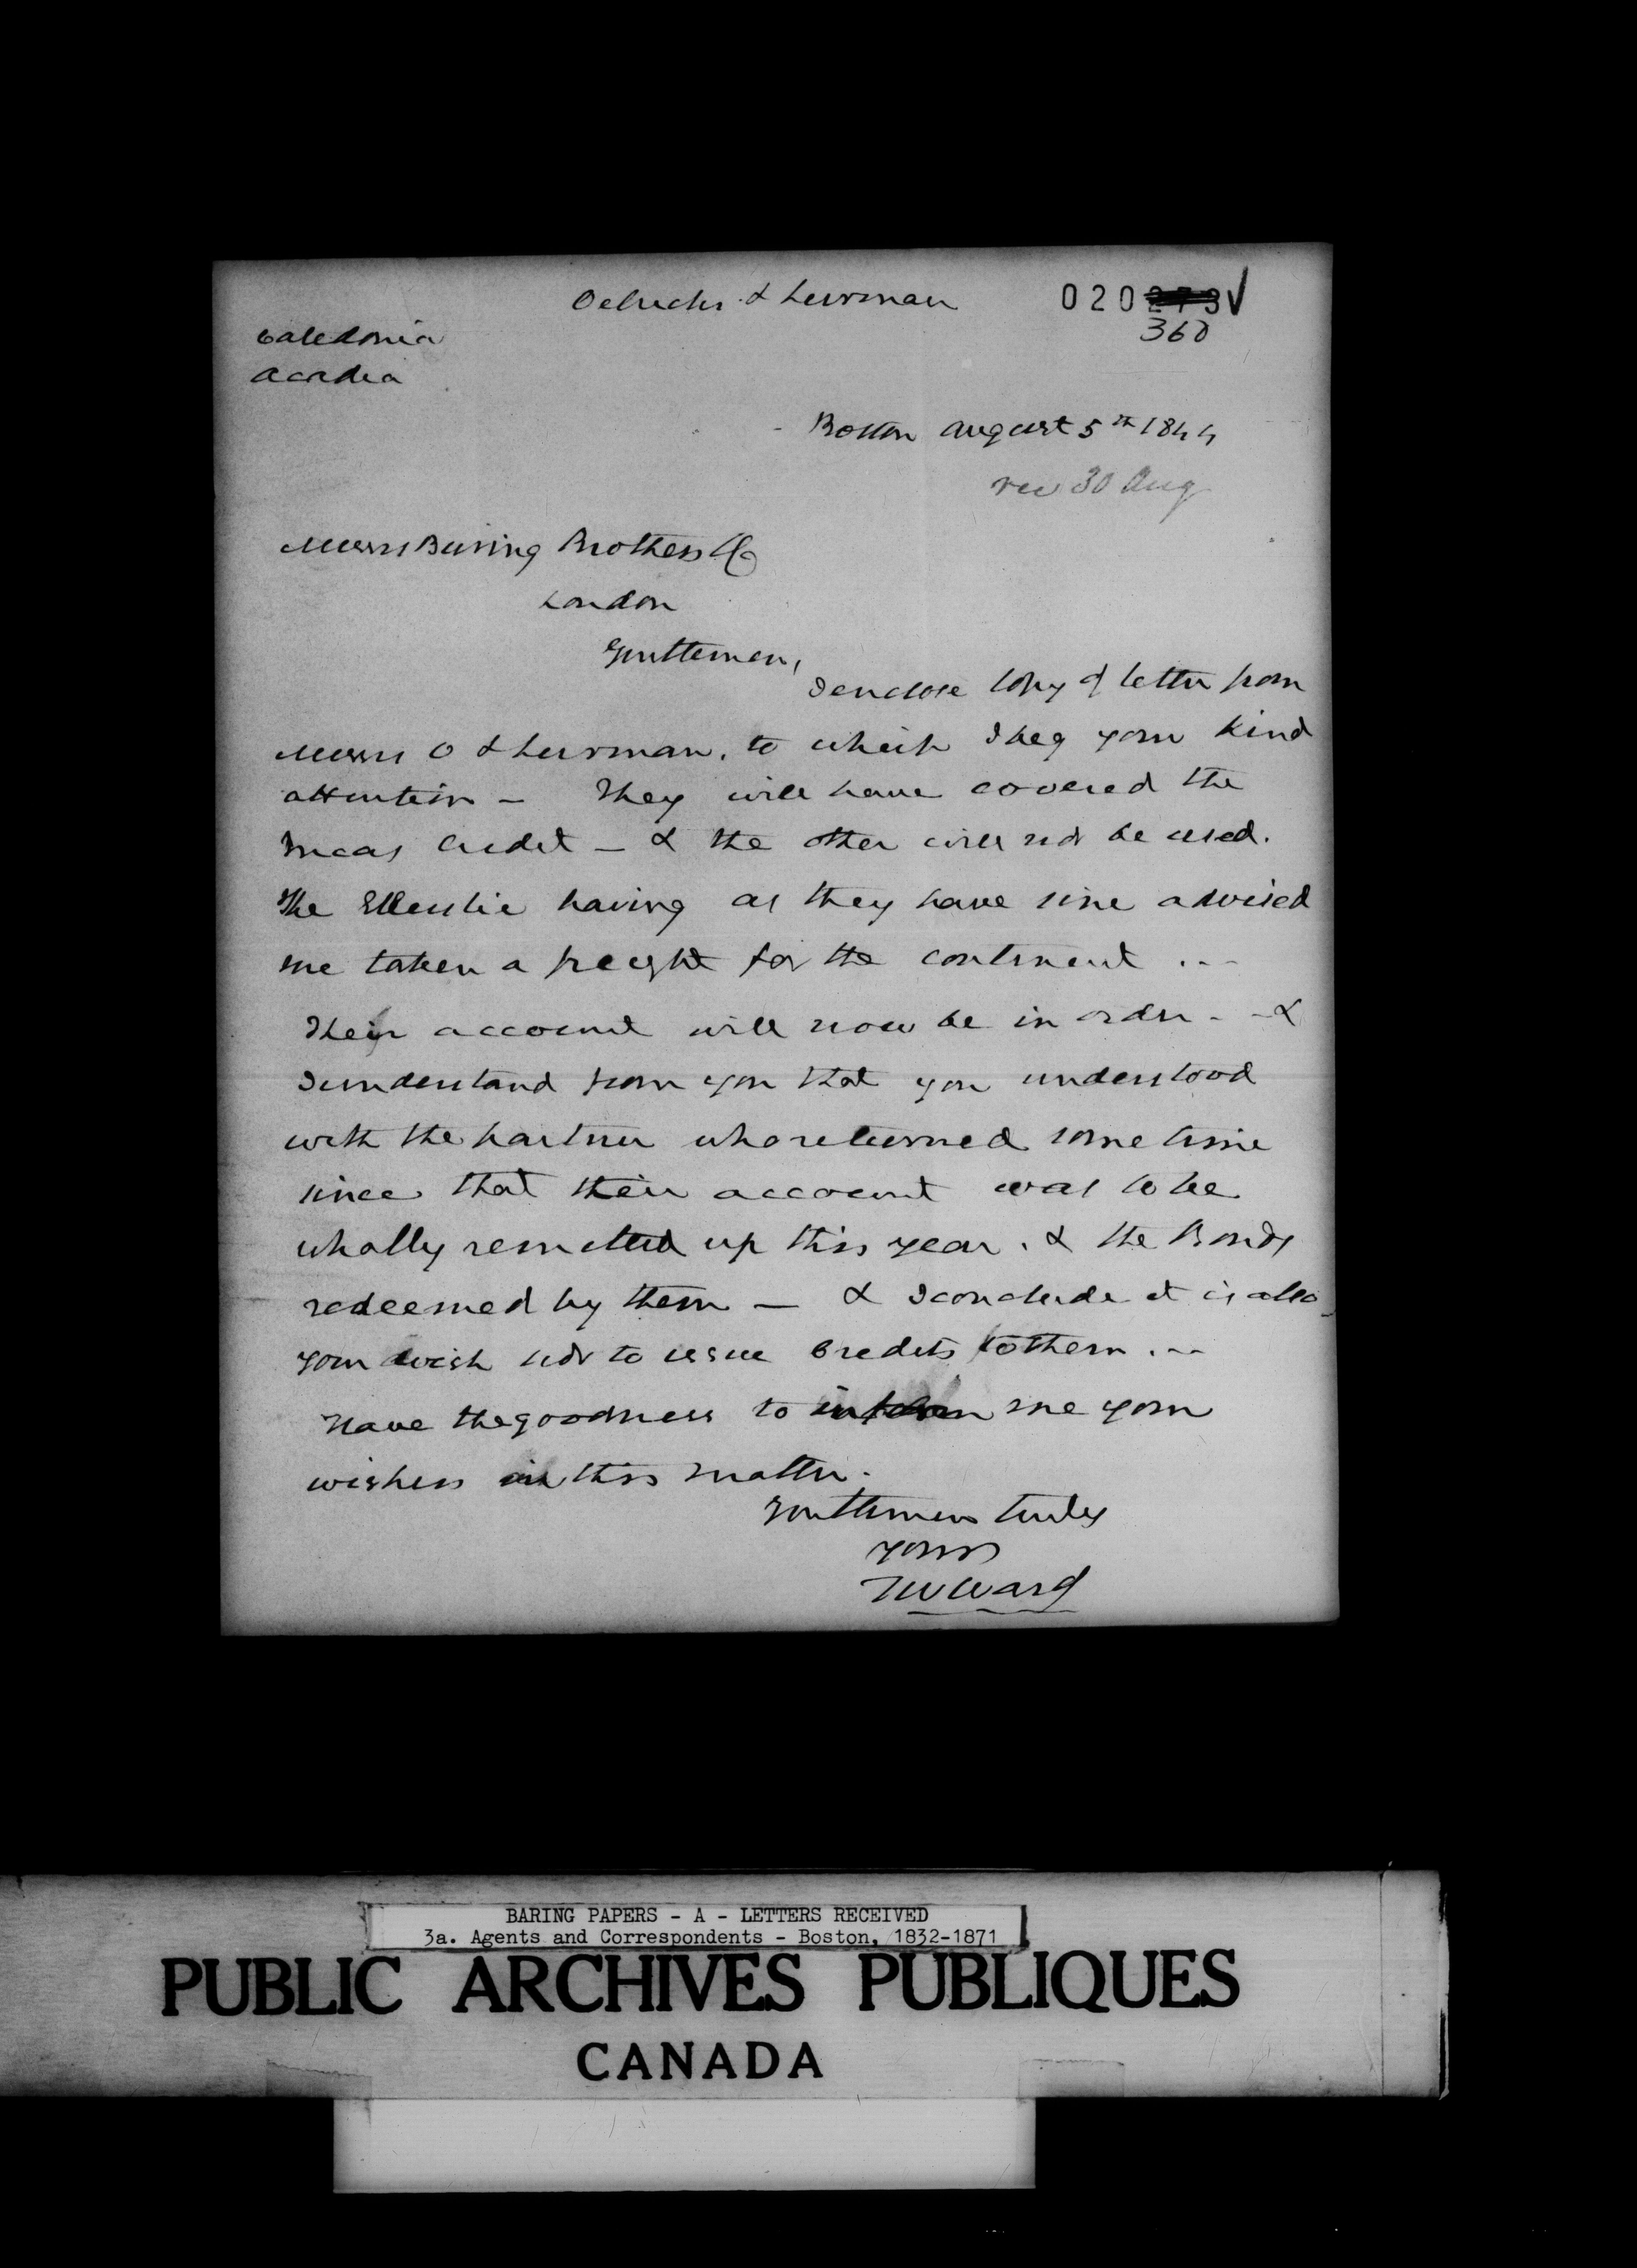 Oelrichs & Lurman
020273✓
360
Caledonia
Acadia
Boston August 5th 1844
rec 30 Aug
Messrs Baring Brothers & Co
London
Gentlemen,
I enclose copy of letter from
Messrs O & Lurman, to which I beg your kind
attention - They will have covered the
Incas Credit - & the other will not be used.
The Ellerslie having as they have since advised
me taken a freight for the continent ...
Their account will now be in order - - &
I understand from you that you understood
with the partner who returned some time
since that their account was to be
wholly remitted up this year. & the Bonds
redeemed by them - & I conclude it is also
your wish not to issue Credits to them ...
Have the goodness to inform me your
wishes in this matter.
Gentlemen truly
yours
T W Ward
BARING PAPERS - A - LETTERS RECEIVED
3a. Agents and Correspondents - Boston, 1832-1871
PUBLIC ARCHIVES PUBLIQUES
CANADA